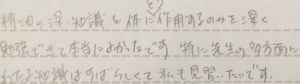 精油の深い知識を体に作用するのかを深く
勉強できて本当によかったです。特に先生の多方面に
わたる知識はすばらしくて私も見習いたいです。